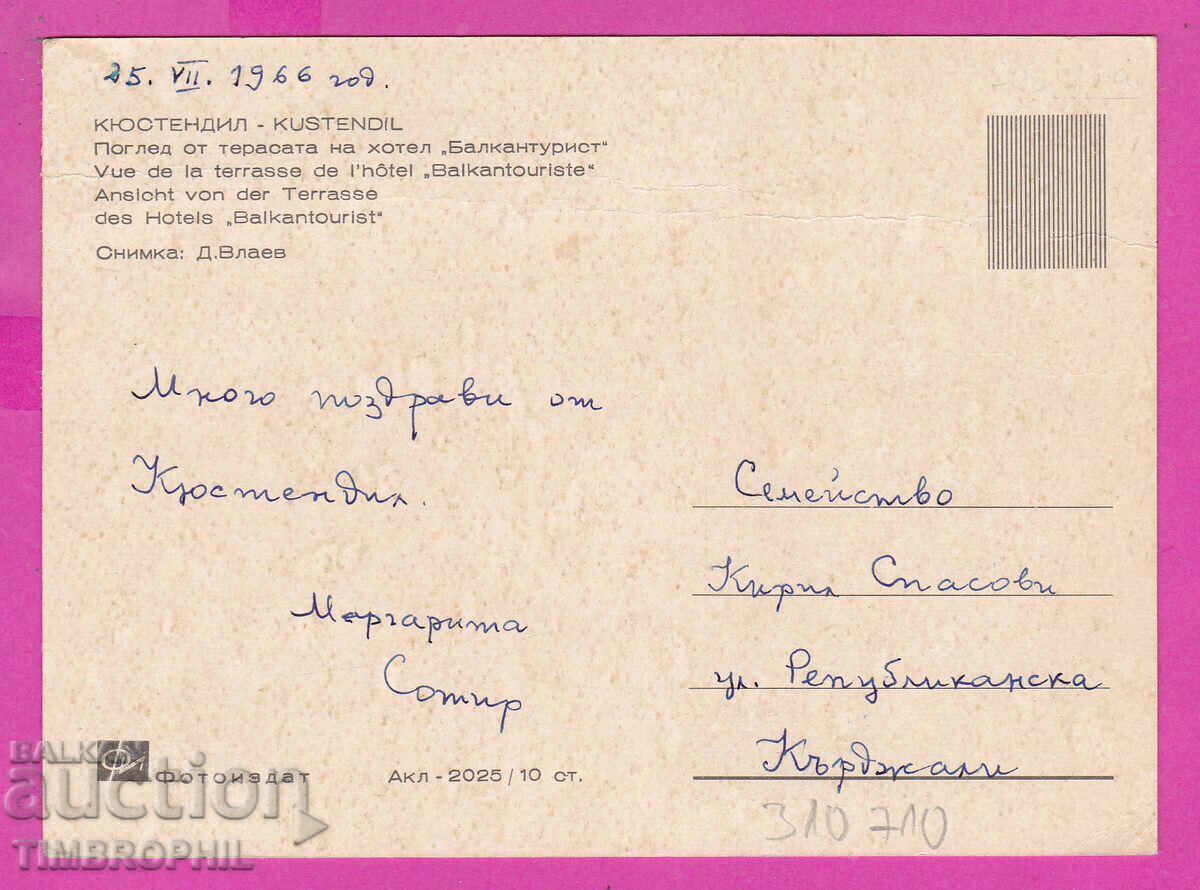 25. VII. 1966 год.
КЮСТЕНДИЛ - KUSTENDIL
Поглед от терасата на хотел „Балкантурист“
Vue de la terrasse de l'hôtel „Balkantouriste“
Ansicht von der Terrasse
des Hotels „Balkantourist“
Снимка: Д. Влаев
Много поздрави от
Кюстендил.
Маргарита
Сотир
Семейство
Кирил Спасови
ул. Републиканска
Кърджали
Фотоиздат
Акл - 2025/10 ст.
310710
BALKAN
auction
TIMBROPHIL